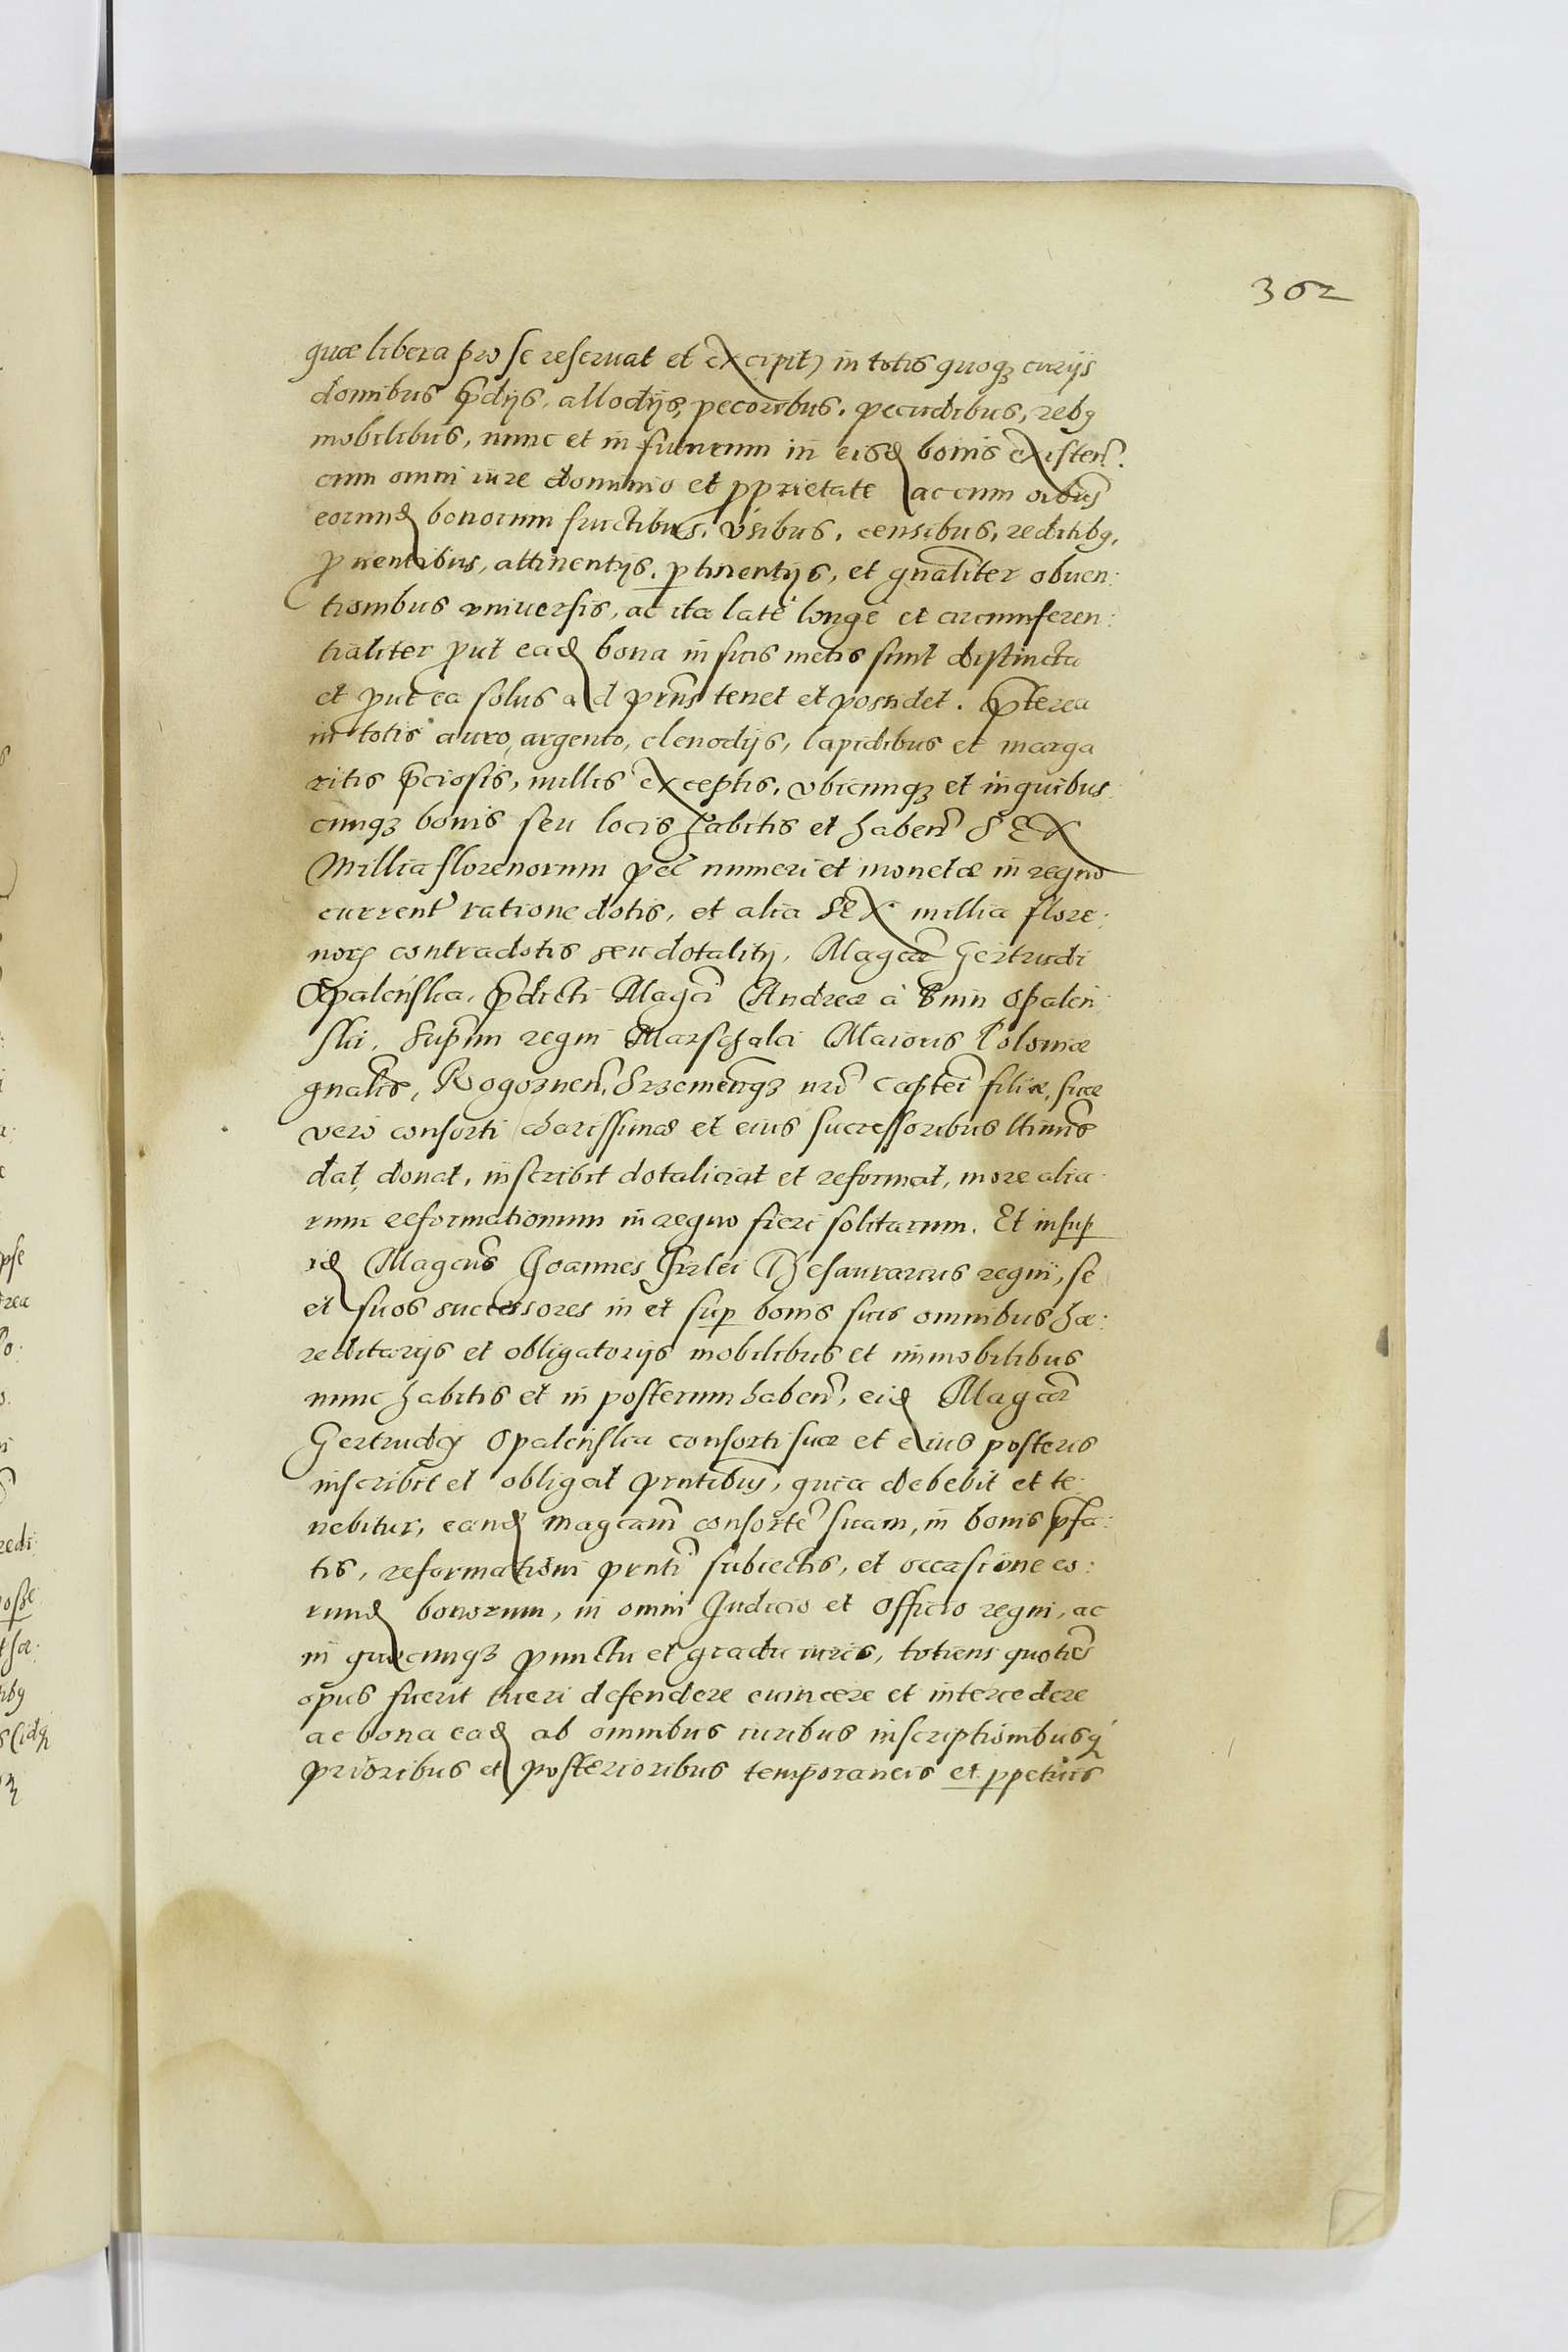 302
quæ libera pro se reseruat et excipit) in totis quoqȝ curijs
domibus p̄dijs, allodijs, pecoribus, pecudibus, rebꝰ
mobilibus, nunc et in futurum in eisd bonis existeñ.
cum omni iure dominio et ꝓprietate ac cum oībus
eorund bonorum fructibus, vsibus, censibus, reditibꝰ,
ꝓuentibus, attinentijs, ꝑtinentijs, et gnāliter obuen:
tionibus vniuersis, ac ita late longe et circumferen:
tialiter ꝓut ead bona in suis metis sunt distincta
et ꝓut ea solus ad pr̄ns tenet et possidet. p̄terea
in totis auro, argento, clenodijs, lapidibus et marga
ritis p̄ciosis, nullis exceptis, vbicunqȝ et in quibus
cunqȝ bonis seu locis habitis et habeñ SEX
Millia florenorum pec̄ numeri et monetæ in regno
current̃ ratione dotis, et alia SEX millia flore:
norꝝ contradotis seu dotalitij, Magcæ Gertrudi
Opalenska, p̄dicti Magci Andreæ à Bnin Opalen
skii, Supr̄mi regni Marschalci Maioris Poloniæ
gnālis, Rogoznen̄, Srzemen̄qȝ nrī Captei filiæ, suæ
vero consorti charissimæ et eius successoribus ltimis
dat, donat, inscribit dotaliciat et reformat, more alia
rum reformationum in regno fieri solitarum. Et insuꝑ
id Magcus Joannes Firlei Thesaurarius regni, se
et suos successores in et suꝑ bonis suis omnibus hæ:
reditarijs et obligatorijs mobilibus et immobilibus
nunc habitis et in posterum habeñ, eid Magcæ
Gertrudi Opalenska consorti suæ et eius posteris
inscribit et obligat pr̄ntibus, quia debebit et te
nebitur, eand magcam consortē suam, in bonis p̄fa:
tis, reformationi pr̄nti subiectis, et occasione eo:
rund bonorum, in omni Judicio et Officio regni, ac
in quocunqȝ punctu et gradu iuris, totiens quotiēs
opus fuerit tueri defendere euincere et intercedere
ac bona ead ab omnibus iuribus inscriptionibusqꝫ
prioribus et posterioribus temporaneis et ꝑpetuis